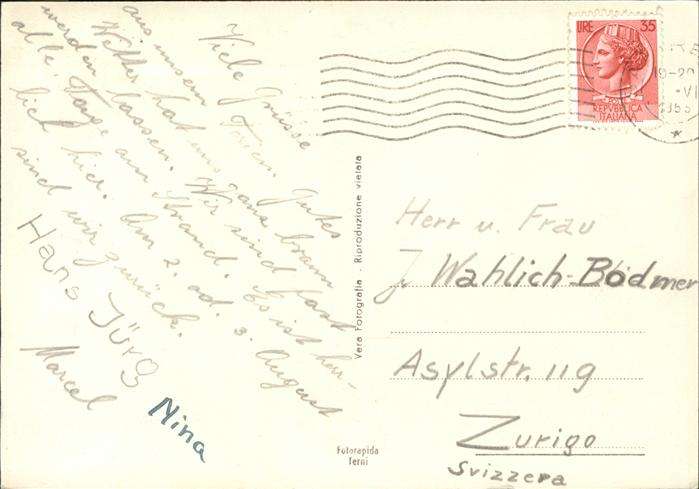 Viele Grüsse
aus unsern Ferien. Gutes
Wetter hat uns ganz braun
werden lassen. Wir sind fast
alle Tage am Strand. Es ist herr-
lich hier. Am 2. od. 3. August
sind wir zurück.
Hans Jürg
Marcel
Nina
Vera Fotografia - Riproduzione vietata
Fotorapida
Terni
LIRE 35
REPVBBLICA
ITALIANA
9-20
Herr u. Frau
J. Wahlich-Bodmer
Asylstr. 119
Zurigo
Svizzera